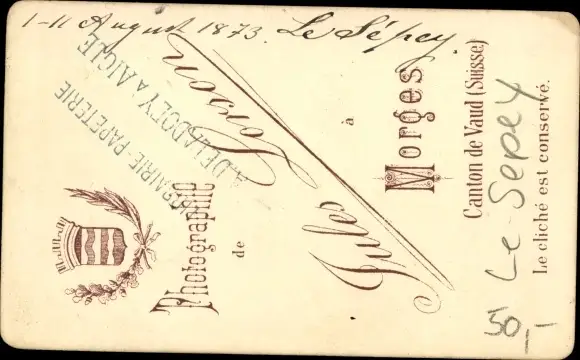 1-11 August 1873. Le Sépey.
LIBRAIRIE-PAPETERIE
A. DÉLADOEY A AIGLE
Photographie
de
Jules Jonson
à
Morges
Canton de Vaud (Suisse)
Le cliché est conservé.
Le Sepey
50